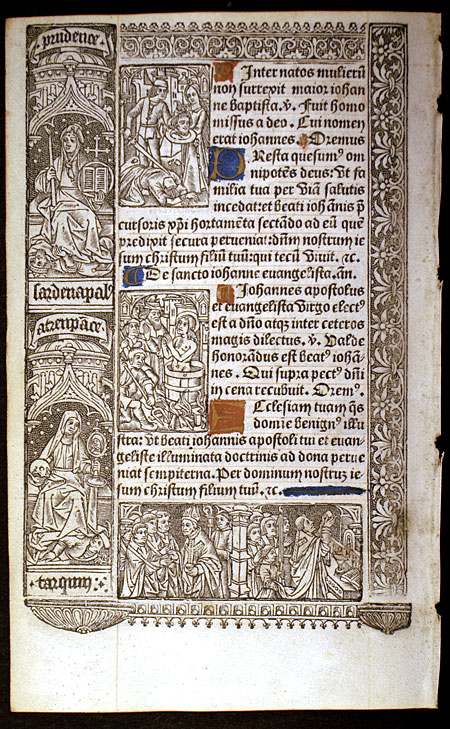 prudence
sardenapal'
atrempāce
tarquin
Inter natos mulierū
non surrexit maior iohan
ne baptista. ℣. Fuit homo
missus a deo. Cui nomen
erat iohannes. Oremus
PResta quesum' om
nipotēs deus: vt fa
milia tua per viā salutis
incedat: et beati iohānis p̄
cursoris xp̄i hortamēta sectādo ad eū quē
predixit secura perueniat: dn̄m nostrum ie
sum christum filiū tuū: qui tecū viuit. ⁊c.
De sancto iohanne euāgelista. an̄.
Iohannes apostolus
et euangelista virgo elect'
est a dn̄o atq; inter ceteros
magis dilectus. ℣. Valde
honorādus est beat' iohā
nes. Qui supra pect' dn̄i
in cena recubuit. Orem'.
Ecclesiam tuam q̄s
domie benign' illu
stra: vt beati iohannis apostoli tui et euan
geliste illuminata doctrinis ad dona perue
niat sempiterna. Per dominum nostruz ie
sum christum filium tuū. ⁊c.